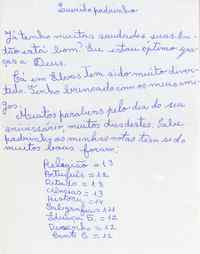 Querido padrinho
Já tenho muitas saudades suas. Es-
tão está bom? Eu estou óptimo gra-
ças a Deus.
Foi em Elvas Tem sido muito diver-
tido. Tenho brincado com os meus ami-
gos.
Muitos parabens pelo dia do seu
aniversário, muitos destes. Sabe
padrinho as minhas notas tem sido
muitos boas foram:
Religião = 13
Português = 12
Ditado = 13
Ciências = 13
História = 14
Caligrafia = 11
Educação F. = 12
Desenho = 12
Canto C. = 12